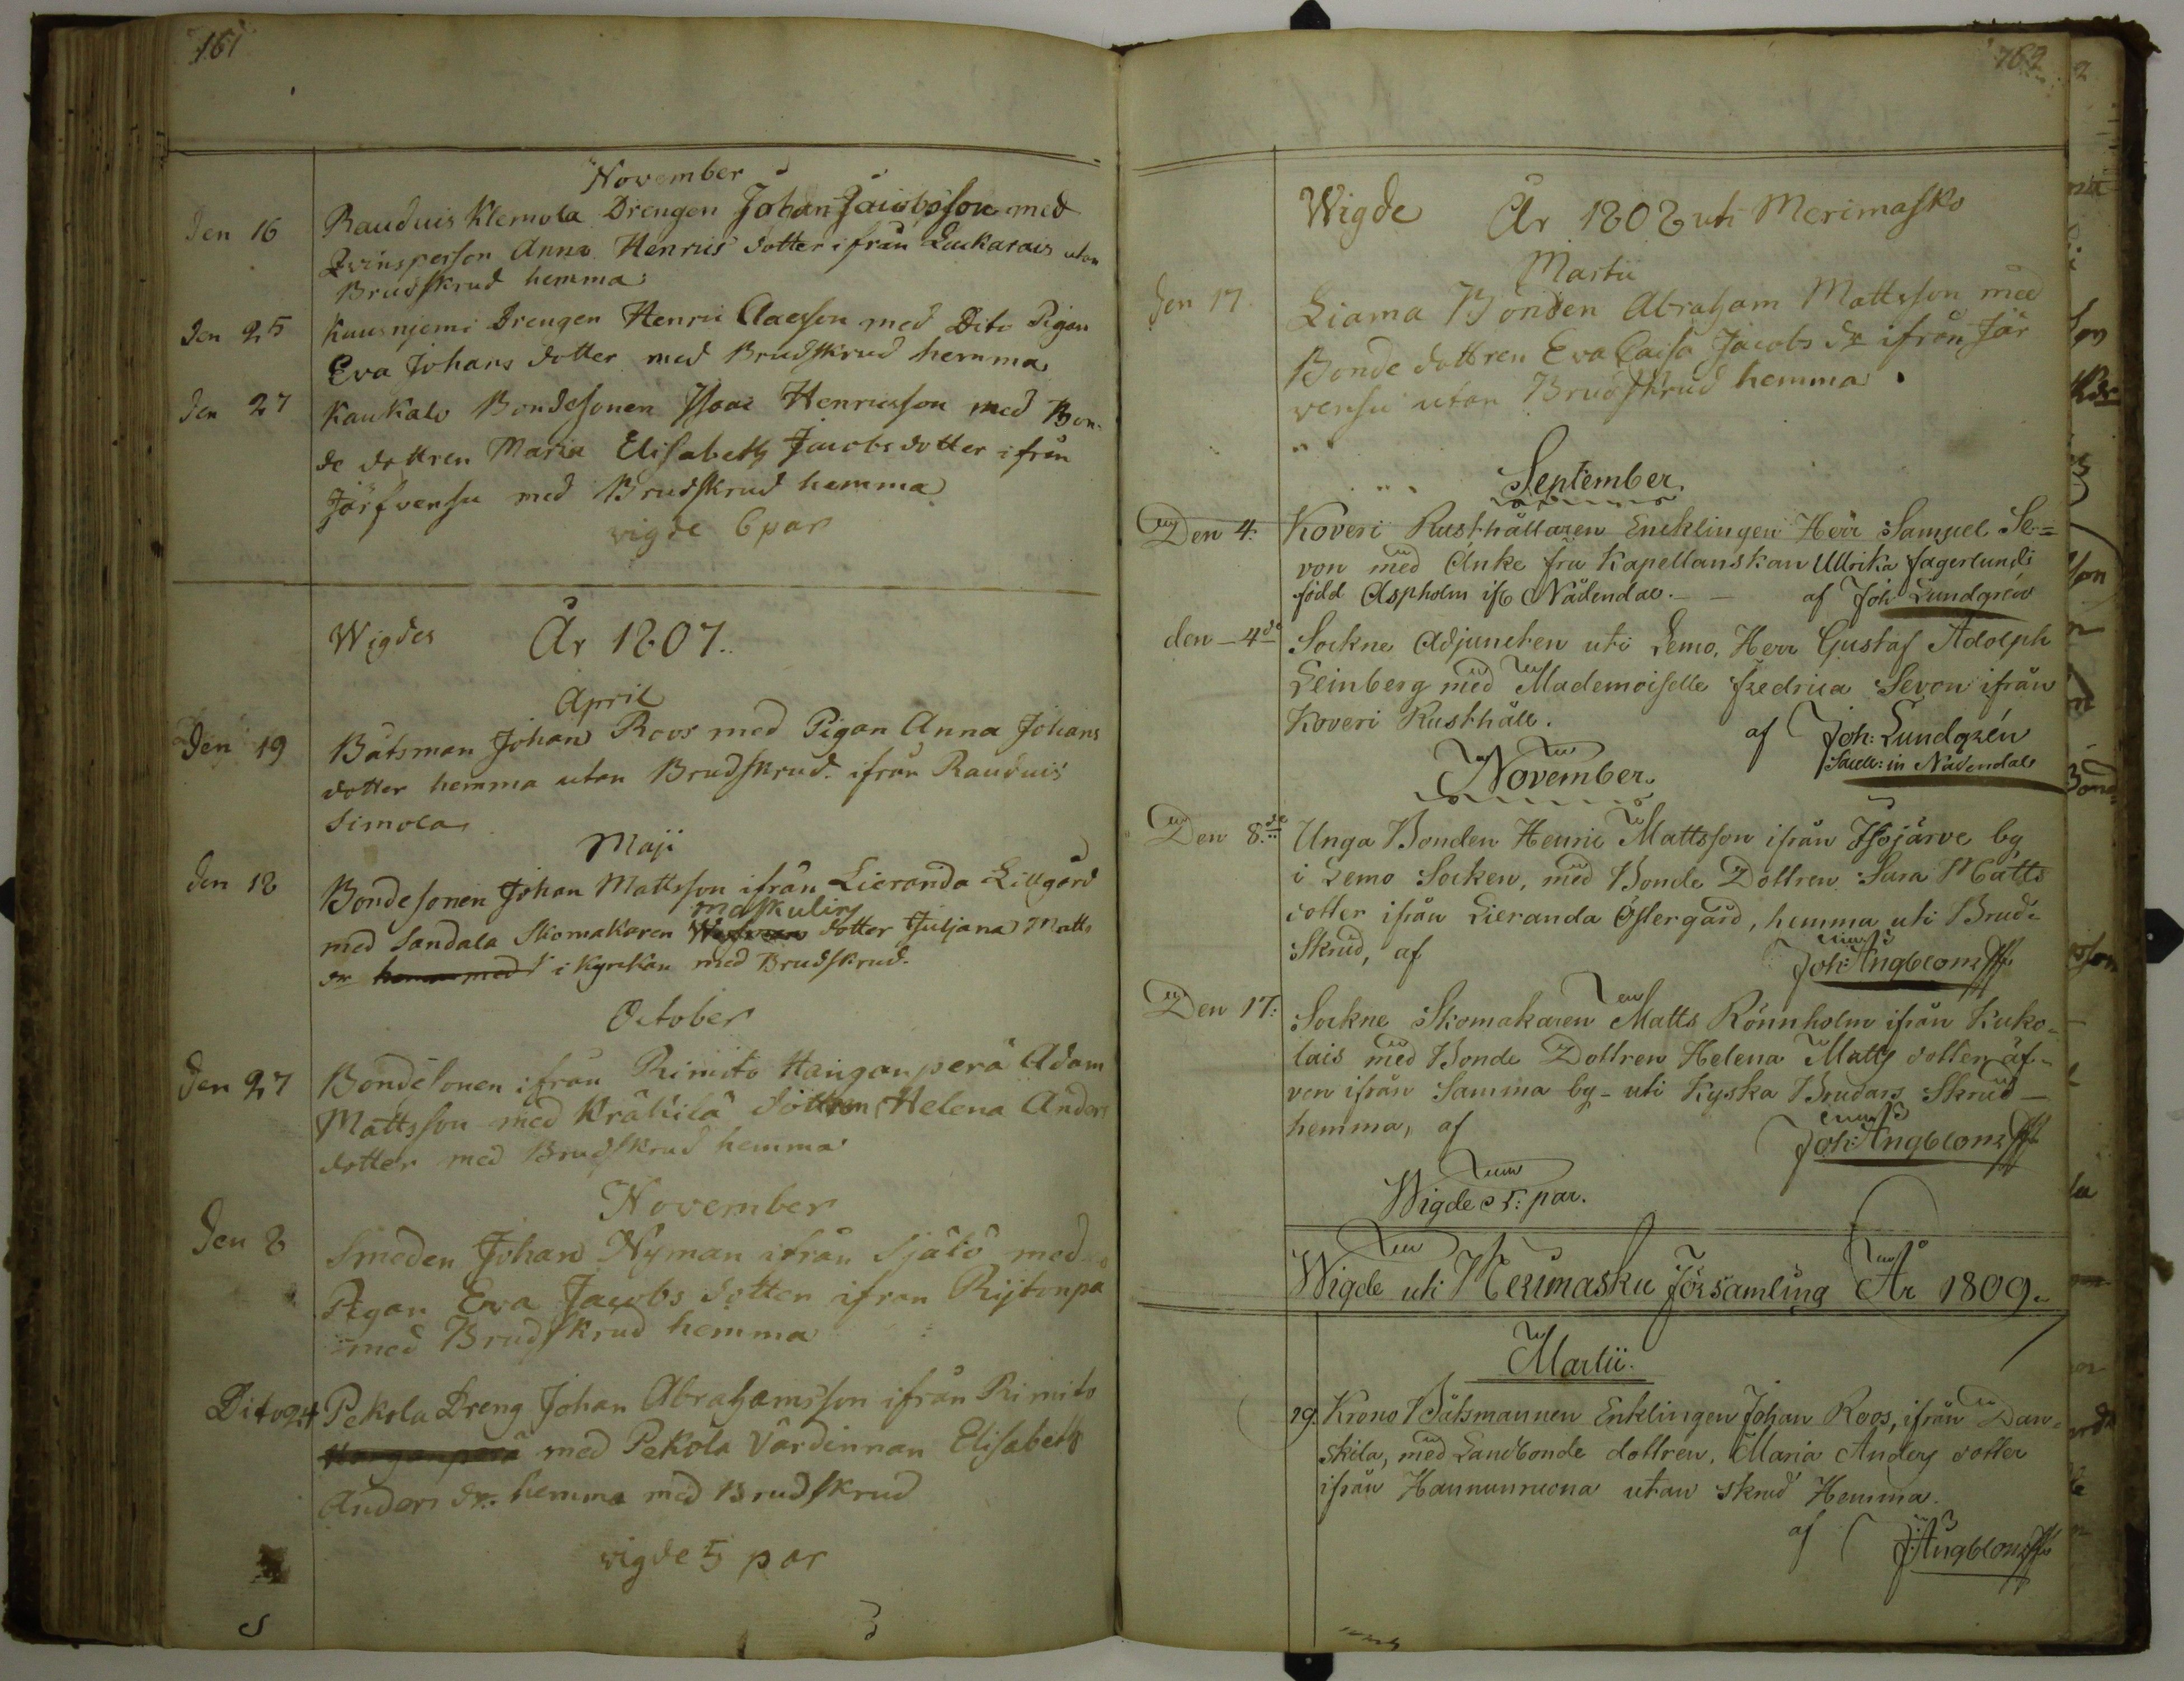 161
November
Den 16 Rauduis Klemola Drengen Johan Jacobsson med
Qvinsperson Anna Henrics dotter ifrån Luukarais utan
Brudskrud hemma
Den 25 Kausnjemi Drengen Henric Claesson med Dito Pigan
Eva Johans dotter med Brudskrud hemma
Den 27 Kaukalo Bondesonen Isaac Henricsson med Bon-
de dottren Maria Elisabeth Jacobs dotter ifrån
Järfvensu med Brudskrud hemma
vigde 6 par
Wigdes År 1807..
April
Den 19 Båtsman Johan Roos med Pigan Anna Johans
dotter hemma utan Brudskrud ifrån Rauduis
Simola
Maji
den 18 Bondesonen Johan Mattsson ifrån Lieranda Lillgård
maskulin
med Sandala Skomakaren dotter Juljana Matts
dr i Kyrckan med Brudskrud.
October
Den 27 Bondesonen ifrån Rimito Hanganperä Adam
Mattsson med Kräkilä dottren Helena Anders
dotter med Brudskrud hemma
November
Den 8 Smeden Johan Nyman ifrån Själö med
Pigan Eva Jacobs dotter ifrån Rijtonpa
med Brudskrud hemma
Dito 24 Pekola Dreng Johan Abrahamsson ifrån Rimito
Hanganperä med Pekola Värdinnan Elisabeth
Anders dr. hemma med Brudskrud
vigde 5 par
162
Wigde År 1808 uti Merimasko
Martii
Den 17. Liama Bonden Abraham Mattsson med
Bonde dottren Eva Caisa Jacobs dr ifrån Jär
vensu utan Brudskrud hemma.
September.
Den 4: Koveri Rusthållaren Encklingen Herr Samuel Se=
von med Änke fru Kapellanskan Ullrika Fagerlund
född Aspholm ifr Nådendal. — af Joh Lundgrén
den - 4de Sockne Adjuncten uti Lemo, Herr Gustaf Adolph
Leinberg med Mademoiselle Fredrica Sevon ifrån
Koveri Rusthåll. af Joh: Lundgrén
Sacell: in Nådendal
November.
Den 8:de Unga Bonden Henric Mattsson ifrån Isojärve by
i Lemo Socken, med Bonde Dottren Sara Matts
dotter ifrån Lieranda Östergård, hemma uti Brud=
Skrud, af Joh: Ångblom
Den 17: Sockne Skomakaren Matts Rönnholm ifrån Kuko=
lais med Bonde Dottren Helena Matts dotter äf=
ven ifrån Samma by - uti Kyska Brudars Skrud —
hemma, af Joh: Ångblom
Wigde 5: par.
Wigde uti Merimasku Församling År 1809.
Martii.
19. Krono Båtsmannen Enklingen Johan Roos, ifrån Dan=
skila, med Landbonde dottren, Maria Anders dotter
ifrån Hannunruona utan skrud Hemma.
af J: Ångblom